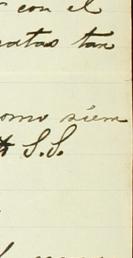 con el
ratas tan
como siem
S.S.